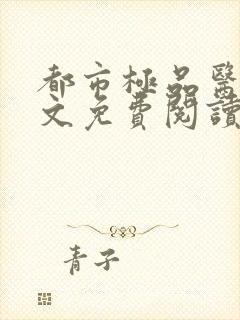 都市極品醫
文免費閱讀
青子